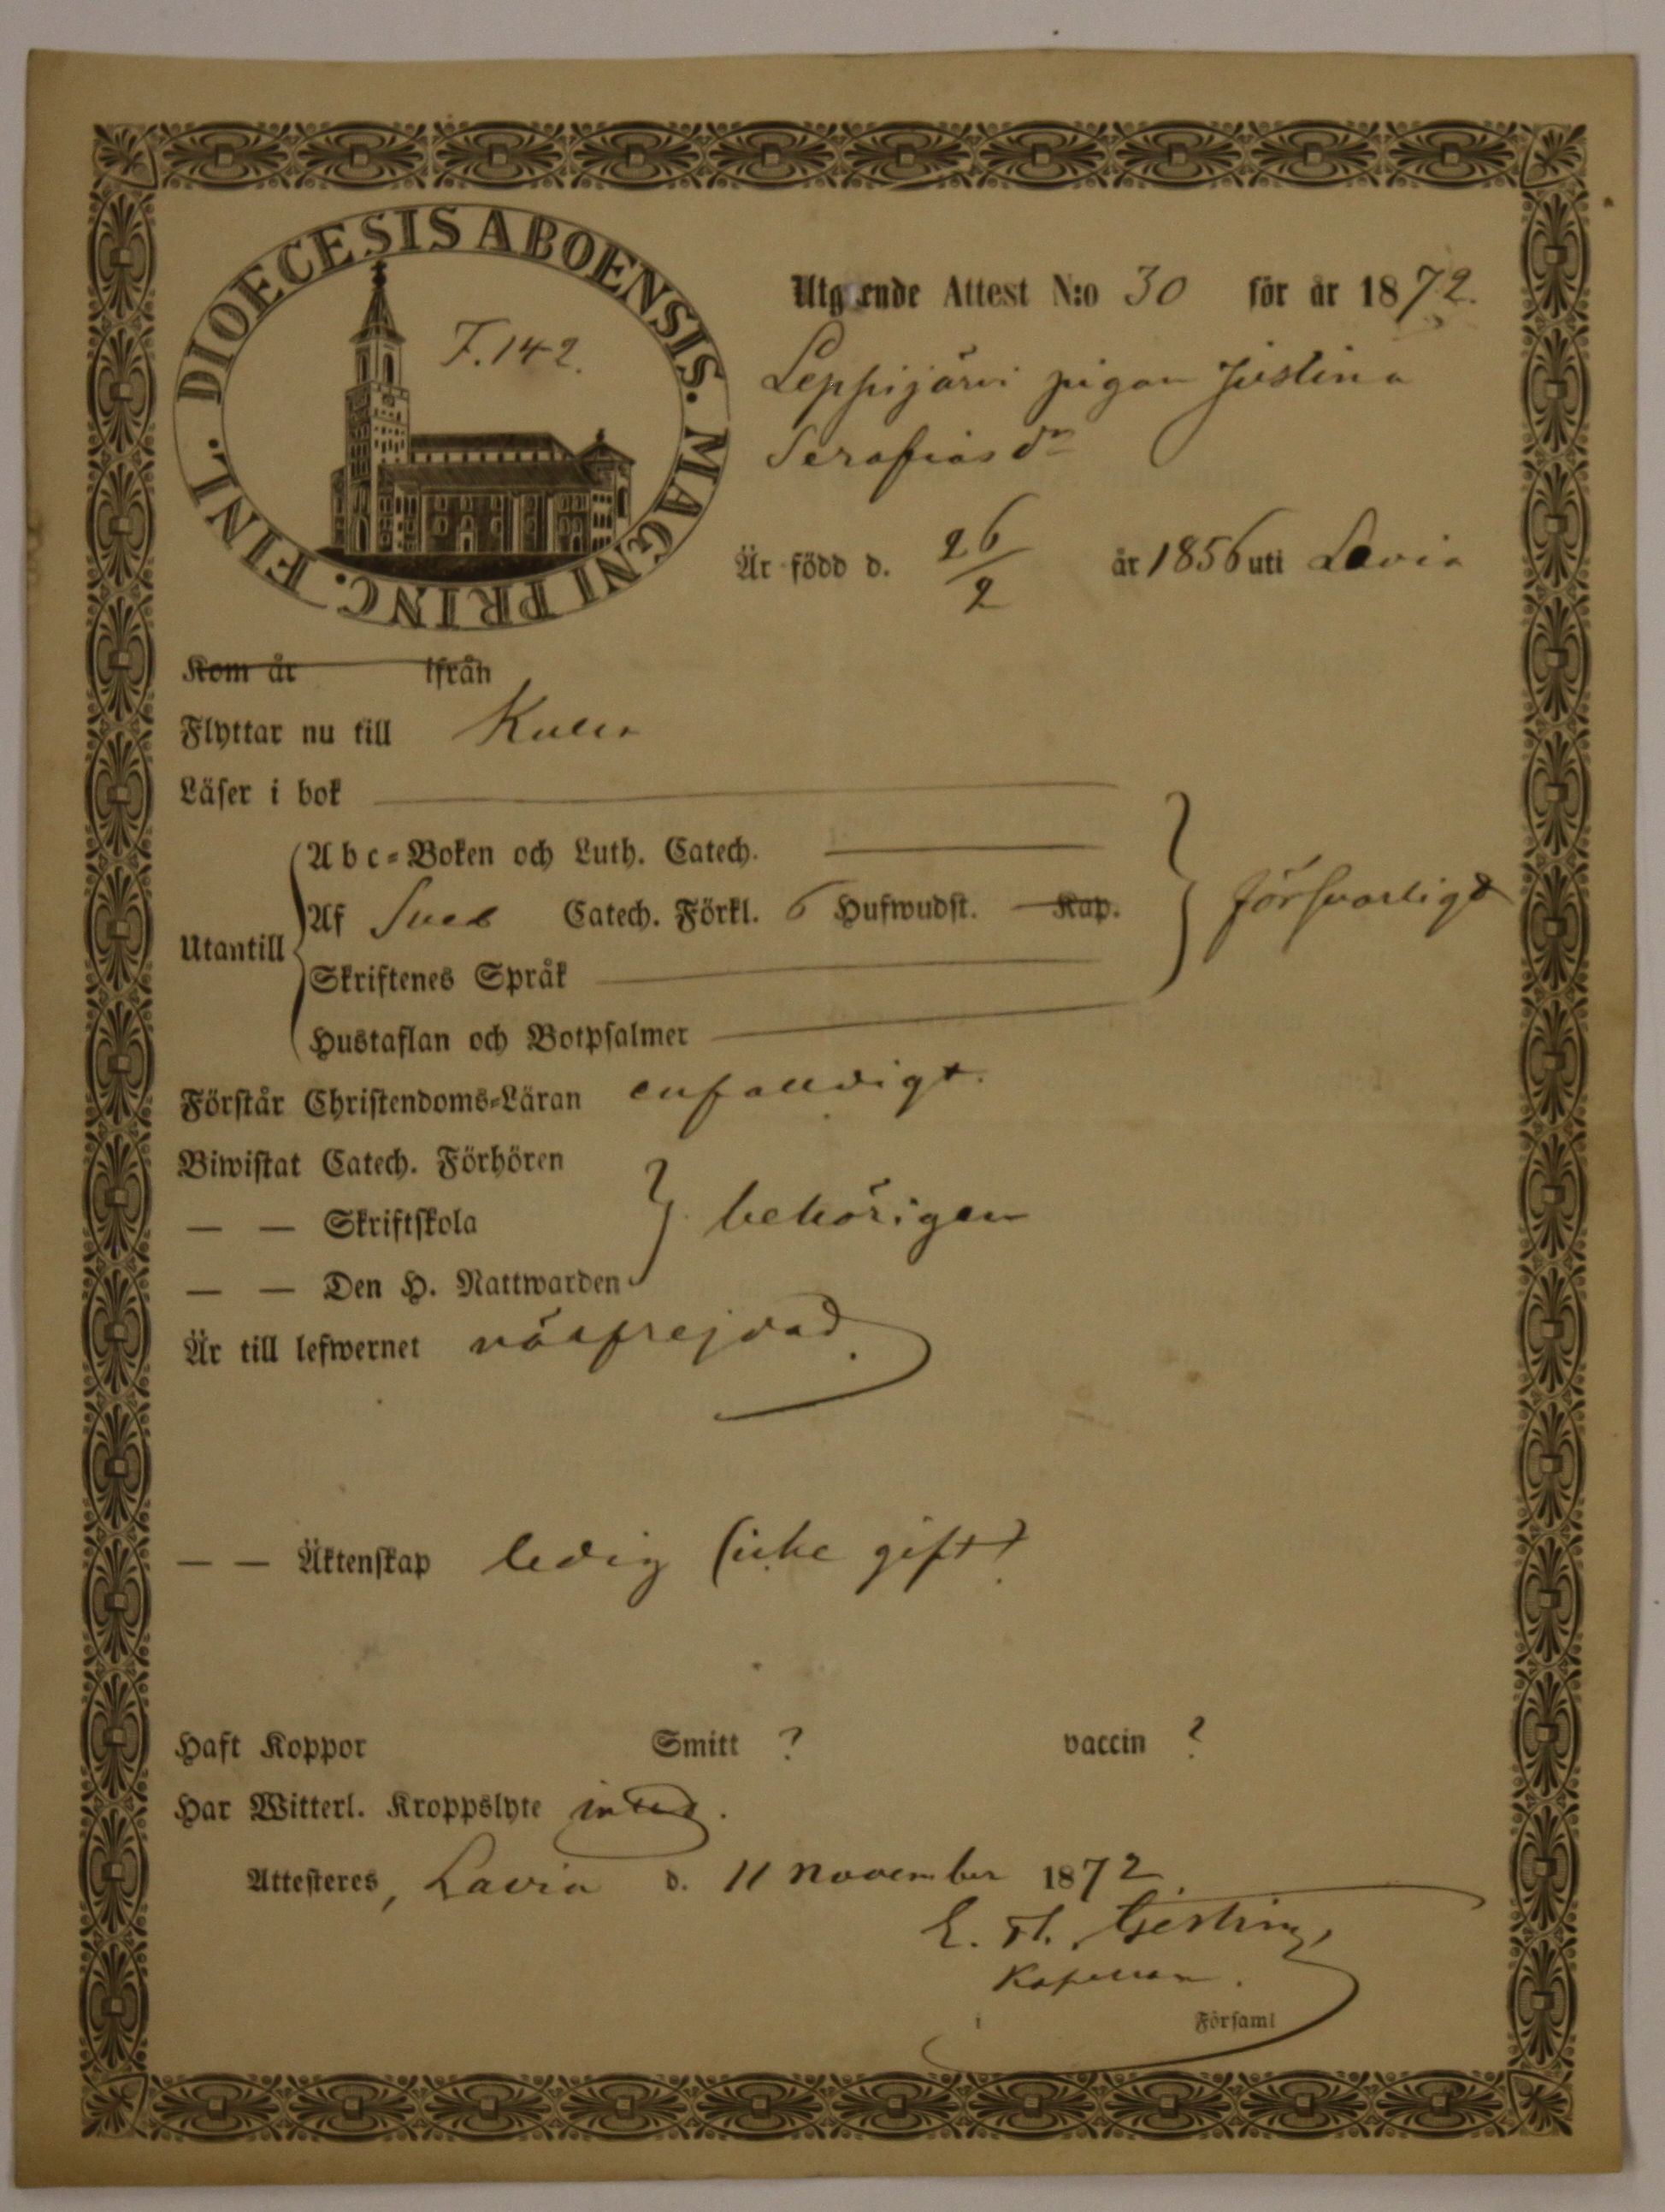 DIOECESIS ABOENSIS. MAGNI PRINC. FINL.
F. 142.
Utgående Attest N:o 30 för år 1872.
Leppijärvi pigan Justina
Serafiasdr
Är född d. 26/2 år 1856 uti Lavia
Kom år ifrån
Flyttar nu till
Läser i bok
Abc-Boken och Luth. Catech.
Af Sveb Catech. Förkl. 6 Hufwudst. Kap.
försvarligt
Utantill
Skriftenes Språk
Hustaflan och Botpsalmer
Förstår Christendoms-Läran enfalldigt.
Biwistat Catech. Förhören
— — Skriftskola
behörigen
— — Den H. Nattwarden
Är till lefwernet välfrejdad.
— — Äktenskap ledig (icke gift)
Haft Koppor Smitt ? vaccin ?
Har Witterl. Kroppslyte intet.
Attesteres, Lavia d. 11 November 1872.
E.
Kapellan.
i Församl